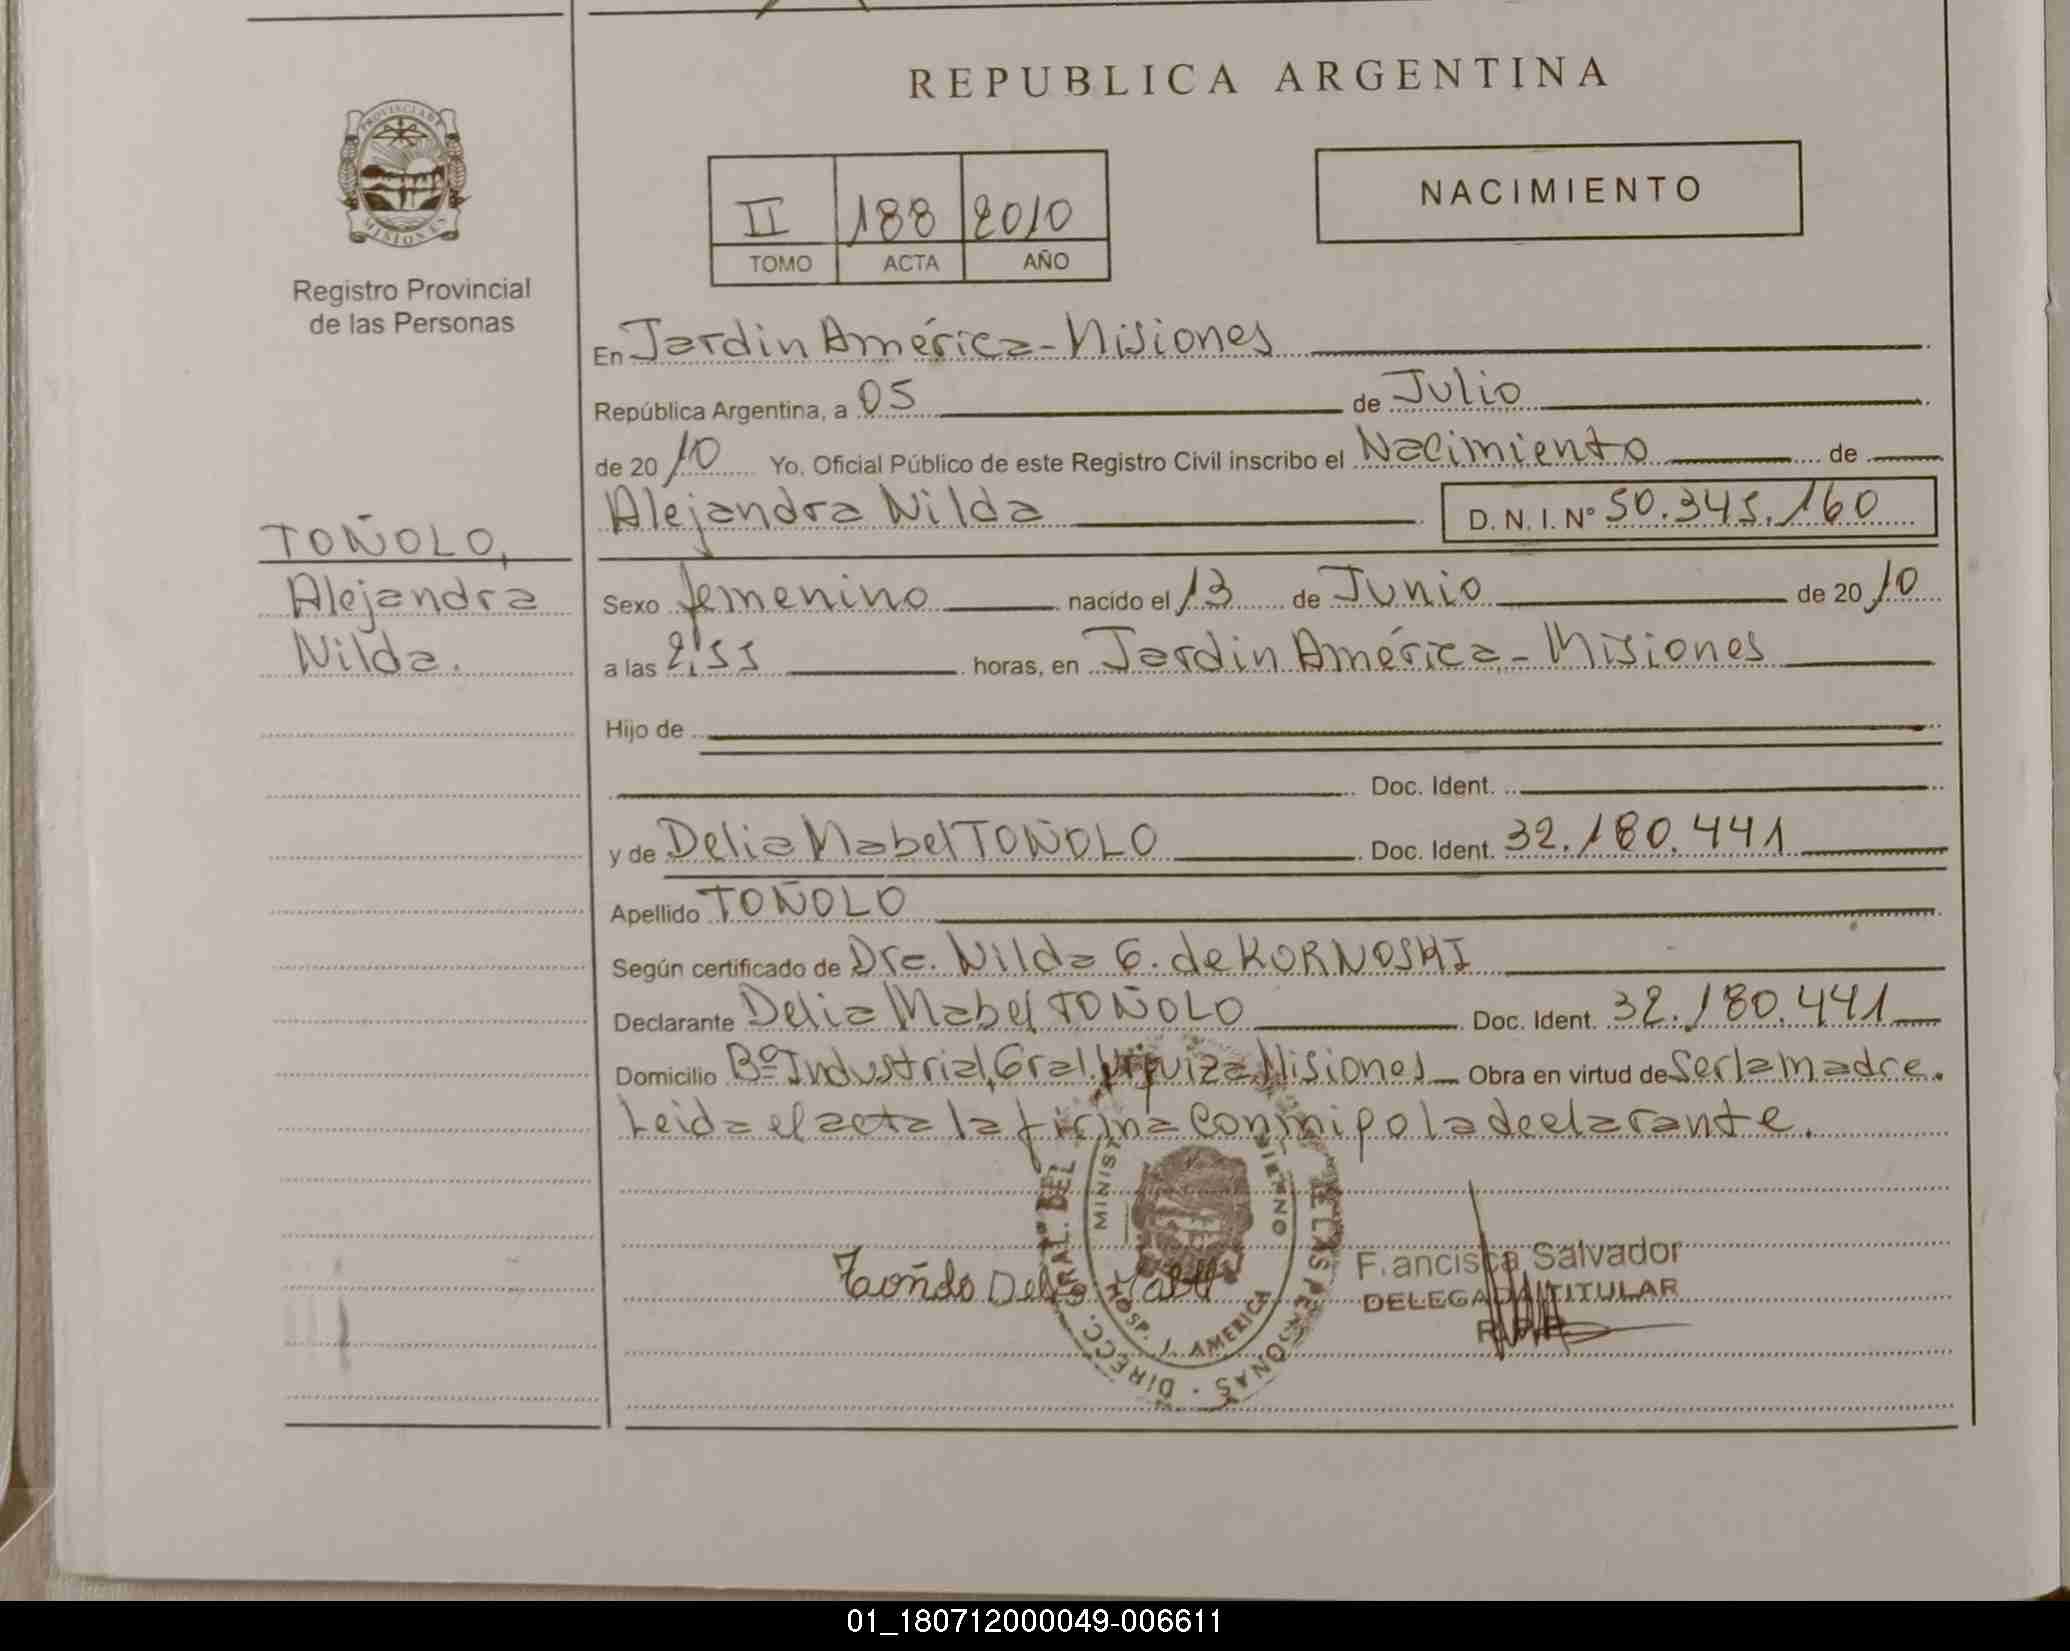 REPUBLICA ARGENTINA
PROVINCIA DE
MISIONES
Registro Provincial
de las Personas
II 188 2010
TOMO ACTA AÑO
NACIMIENTO
En Jardin América - Misiones
República Argentina, a 05 de Julio
de 2010 Yo, Oficial Público de este Registro Civil inscribo el Nacimiento de
Alejandra Nilda D. N. I. N° 50.345.160
TOÑOLO,
Alejandra
Nilda.
Sexo femenino nacido el 13 de Junio de 2010
a las 2:55 horas, en Jardin América - Misiones
Hijo de
Doc. Ident.
y de Delia Mabel TOÑOLO Doc. Ident. 32.180.441
Apellido TOÑOLO
Según certificado de Dra. Nilda G. de KORNOSKI
Declarante Delia Mabel TOÑOLO Doc. Ident. 32.180.441
Domicilio Bº Industrial, Gral. Urquiza Misiones Obra en virtud de Ser la madre.
Leida el acta la firma con mi po la declarante.
DIRECC. GRAL. DEL DE LAS PERSONAS
HOSP. J. AMERICA
Francisca Salvador
DELEGADA TITULAR
R.P.P.
01_180712000049-006611